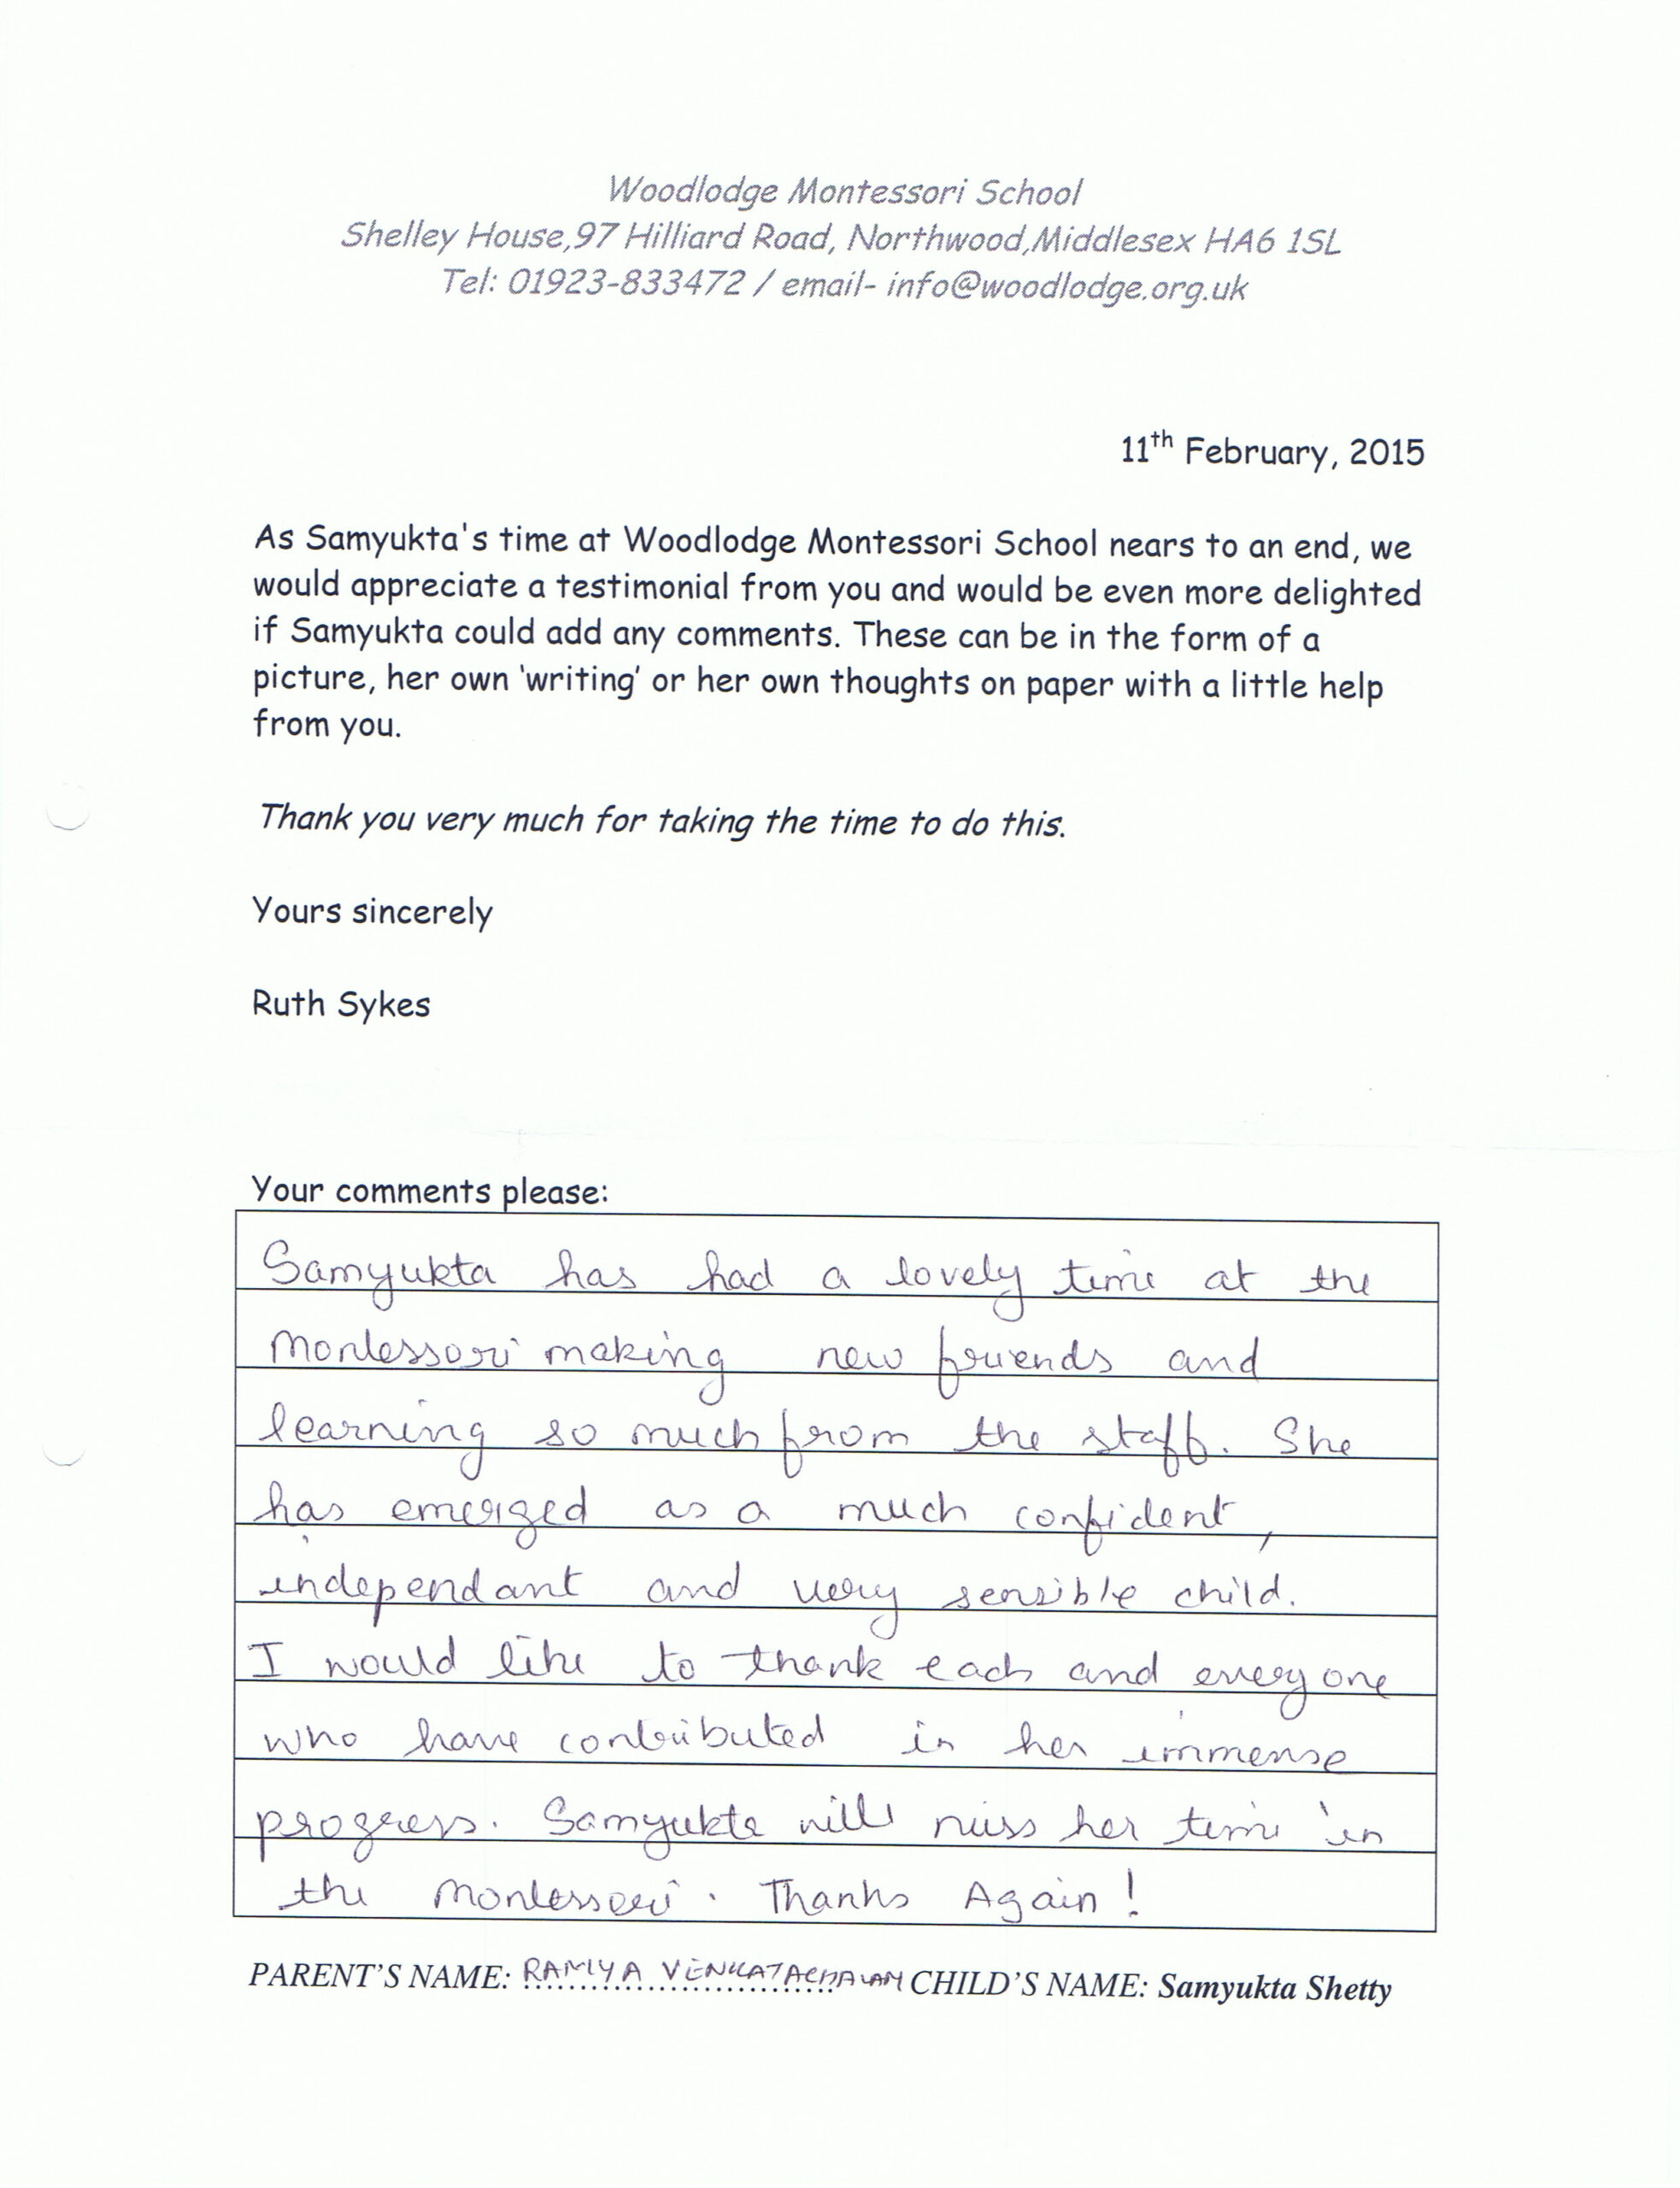 Woodlodge Montessori School
Shelley House,97 Hilliard Road, Northwood,Middlesex HA6 1SL
Tel: 01923-833472 / email- info@woodlodge.org.uk
11th February, 2015
As Samyukta's time at Woodlodge Montessori School nears to an end, we
would appreciate a testimonial from you and would be even more delighted
if Samyukta could add any comments. These can be in the form of a
picture, her own 'writing' or her own thoughts on paper with a little help
from you.
Thank you very much for taking the time to do this.
Yours sincerely
Ruth Sykes
Your comments please:
Samyukta has had a lovely time at the
Montessori making new friends and
learning so much from the staff. She
has emerged as a much confident,
independant and very sensible child.
I would like to thank each and everyone
who have contributed in her immense
progress. Samyukta will miss her time in
the Montessori. Thanks Again!
PARENT'S NAME: RAMYA VENKATACHALAM CHILD'S NAME: Samyukta Shetty